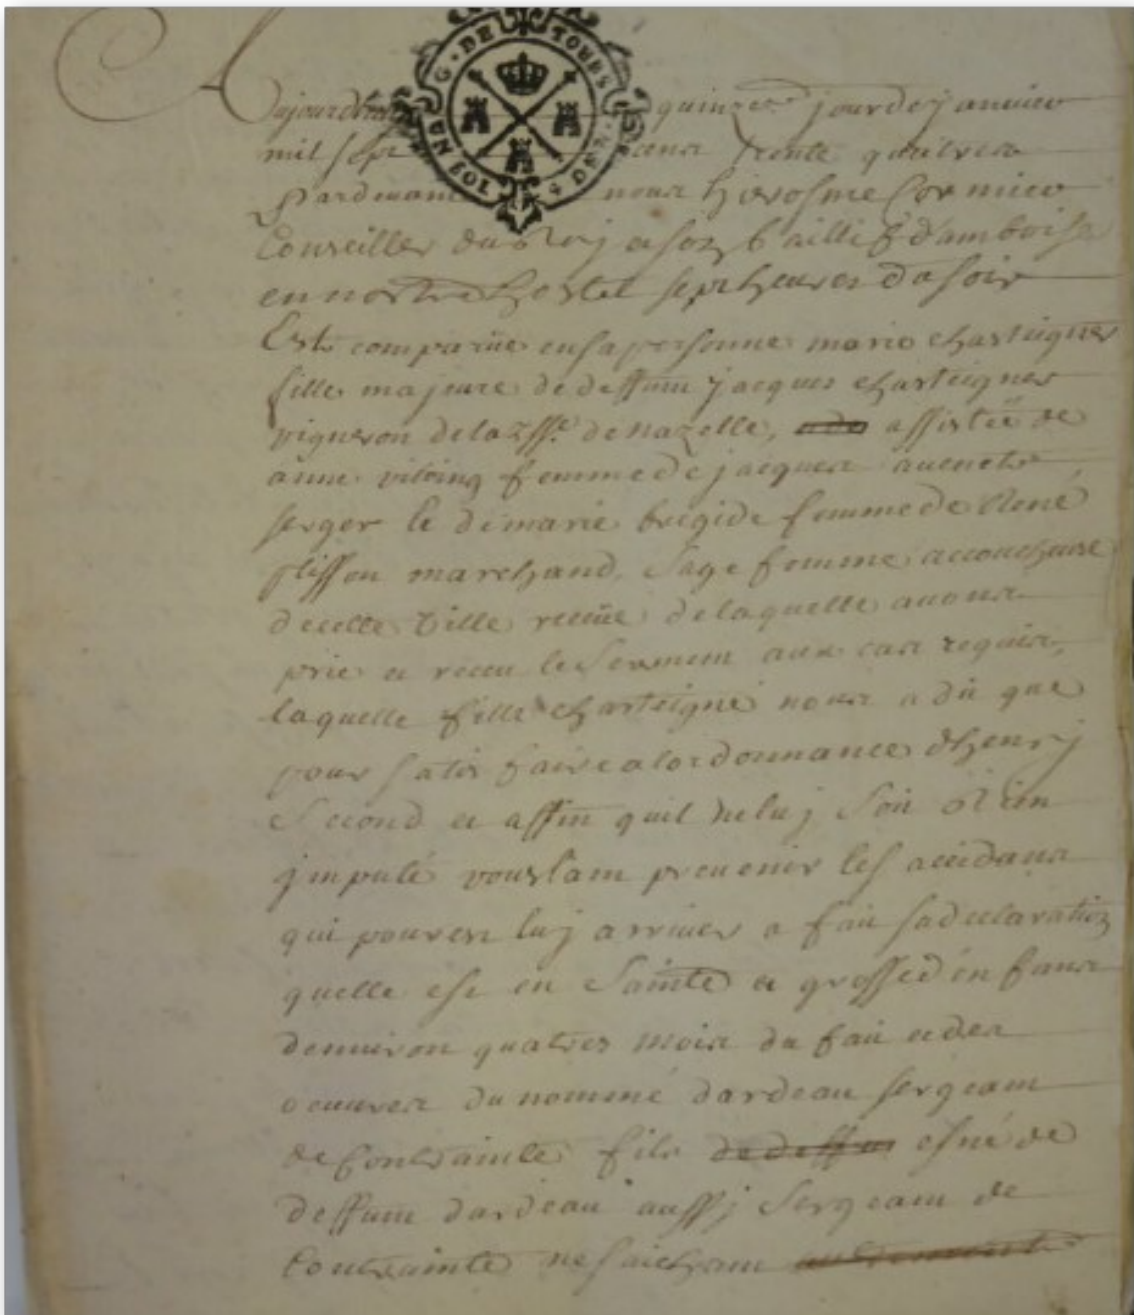 G. DE TOURS
Aujourdhuy quinze jour de januier
mil sept cent trente quatre
Pardeuant nous hierosme Cormier
Conseiller du Roy a son bailliage d'amboise
en nostre hostel sept heures du soir
Est comparüe en sa personne marie chasteigner
fille majeure de deffunt jacques chasteigner
vigneron de la psse de nazelle, assistée de
anne femme de jacques
serger de marie brigide femme de René
plisson marchand, sage femme accoucheuse
de cette Ville receüe de laquelle auons
pris et receu le Serment aux cas requis,
laquelle fille chasteigné nous a dit que
pour satisfaire a lordonnance dhenry
Second et affin quil ne luj Soit Rien
jmputé voulant preuenir les accidans
qui pouroit luj arriuer a fait sa declaration
quelle est en Sainte et grosse d'enfans
denuiron quatres mois du fait et des
oeuures du nommé dardeau sergeant
de Contrainte fils de deffun esné de
deffunt dardeau aussj Sergeant de
Contrainte ne saichant